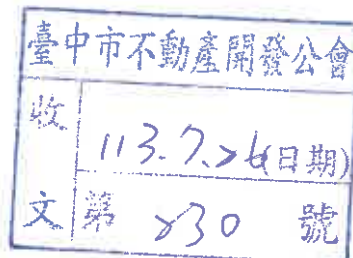 臺中市不動產開發公會
收
113.7.26(日期)
文 第 830 號